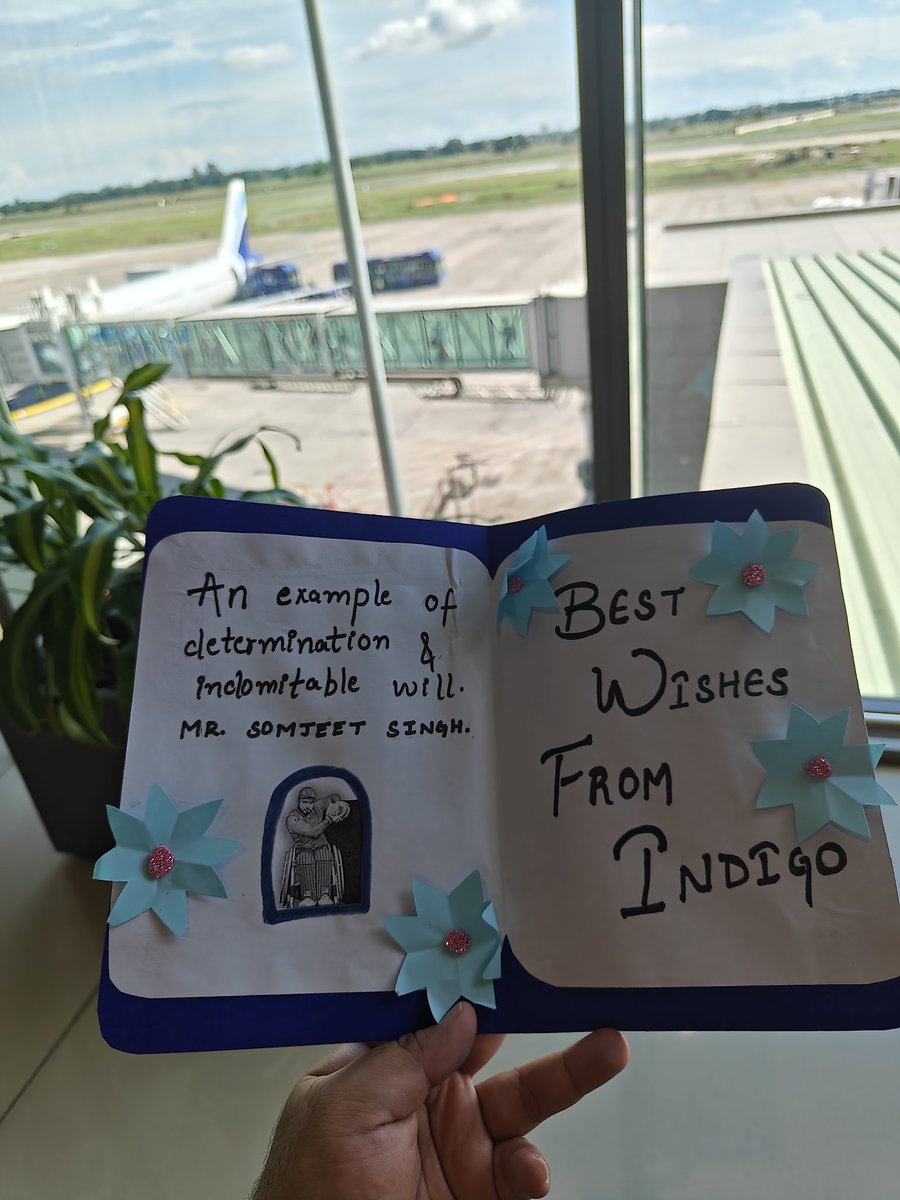 An example of
determination &
indomitable will.
MR. SOMJEET SINGH.
BEST
WISHES
FROM
INDIGO